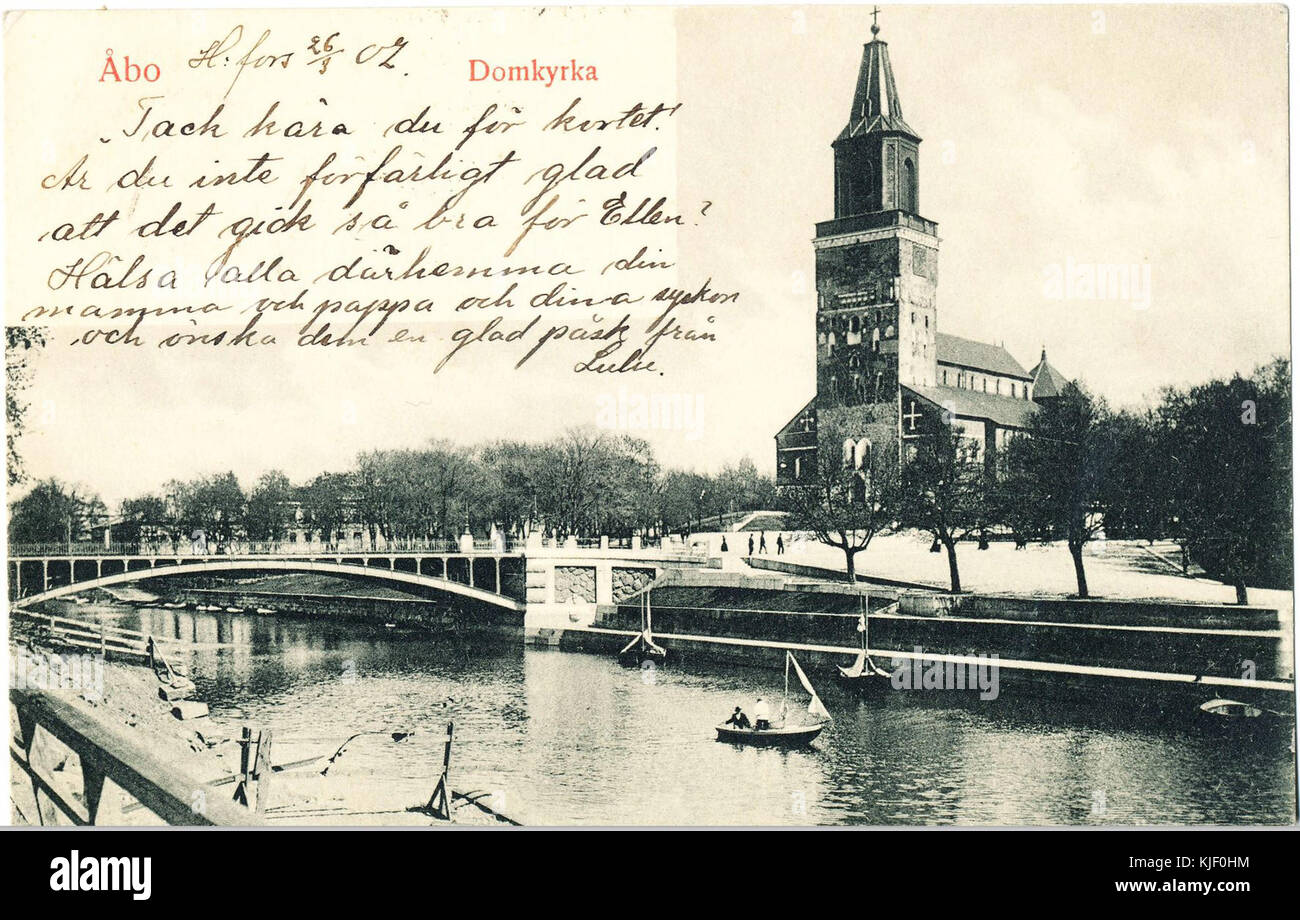 Åbo H:fors 26/3 02. Domkyrka
Tack kära du för kortet!
Är du inte förfärligt glad
att det gick så bra för Ellen?
Hälsa alla därhemma din
mamma och pappa och dina syskon
och önska dem en glad påsk från
alamy
Image ID: KJF0HM
www.alamy.com